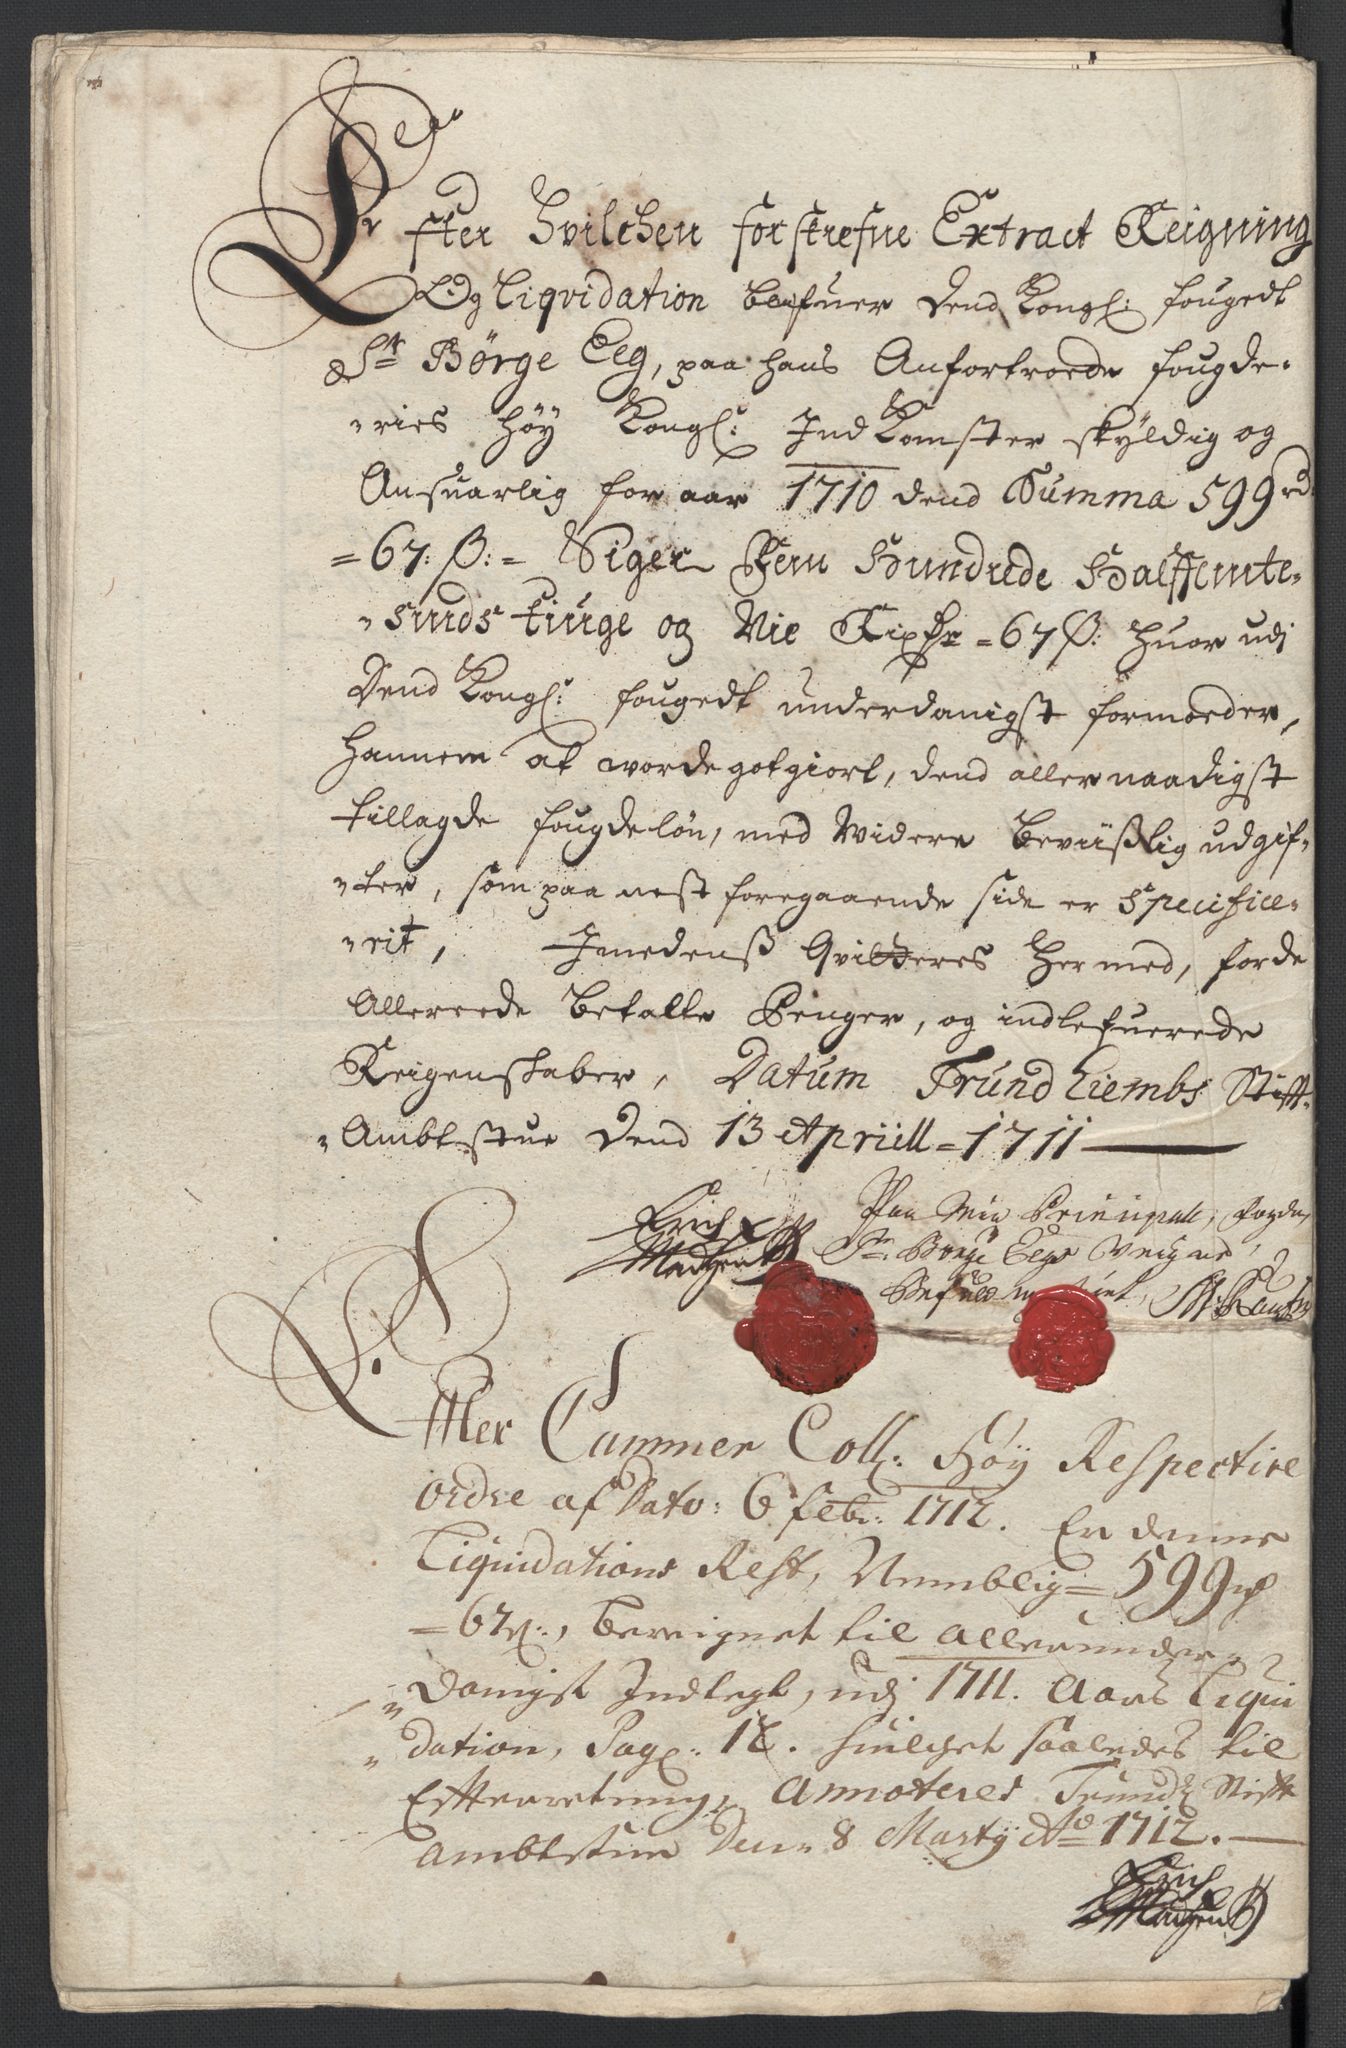 Efter hvilchen forskrefne Extract Reigning
Og Liqvidation blifuer dend Kongl: fougedt
Sr Börge Eeg, paa hans Anfortroede fougde-
"ries höy Kongl: IndKomster skÿldig og
Ansuarlig for aar 1710 dend Summa 599 rd
=67: ß:= Siger Fem Hundrede Halffemte-
"sinds tiuge og Nie Rixdr =67 ß: huor udj
Dend Kongl: fougedt underdanigst formoeder,
hannem at vorde gotgiort, dend allernaadigst
tillagde fougdelön, med Widere beviißlig udgif-
"ter, som paa nest foregaaende side er specifice-
"rit, Imedenß Qvitteres hermed, forde
Allereede betalte Penger, og indlefuerede
Reigenskaber, Datum Trundhiembs Stift-
"Ambtstue Dend 13 Apriill = 1711
Erich Madtzen
Paa Min Principall, fogden
Sr. Börge Eegs Veigne,
Befuldmegtiget
Effter Cammer Coll: Höy Respective
ordre af Dato: 6 febr: 1712. Er denne
Liquidations Rest, Nemblig = 599 rd
=67 ß:, bereignet til allerunder-
"danigst Indlegt, udj 1711. Aars Liqui
"dation, Pag: 18. huilchet saaledes til
Efterretning Annoteres Trundh Stift
Ambtstue Den 8 Martij Ao 1712.
Erich Madtzen